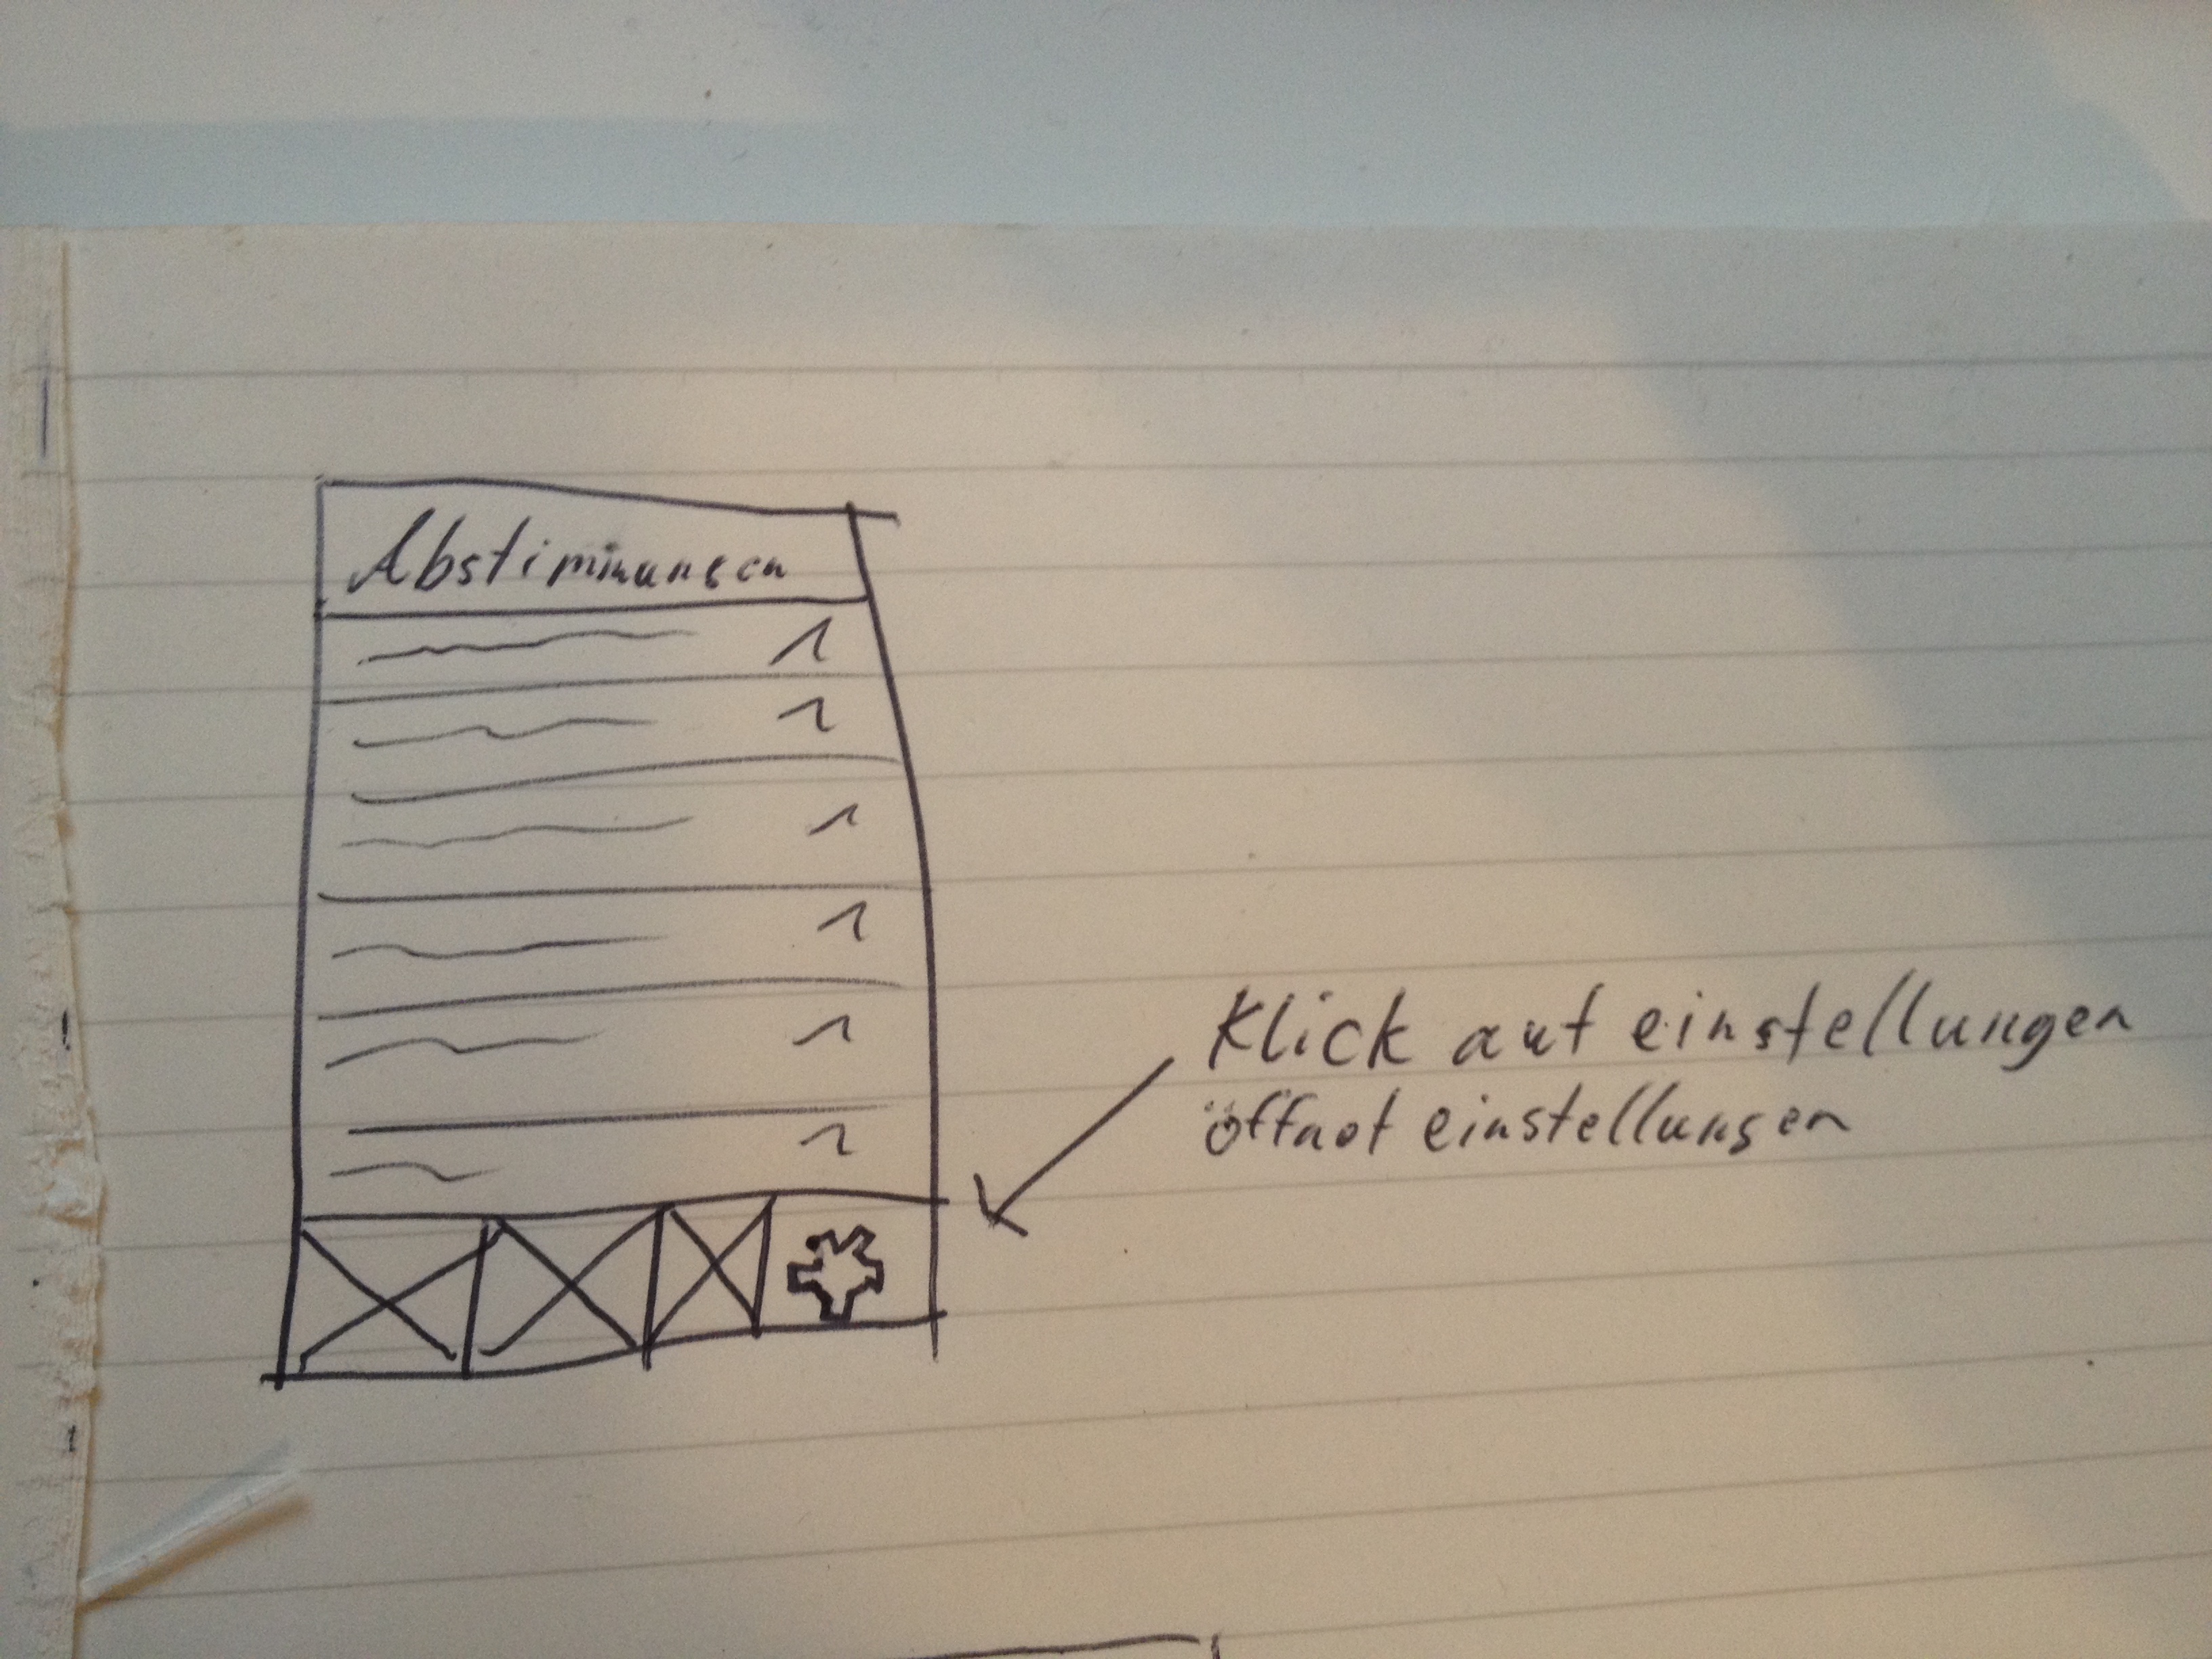 Abstimmungen
Klick auf einstellungen
öffnet einstellungen